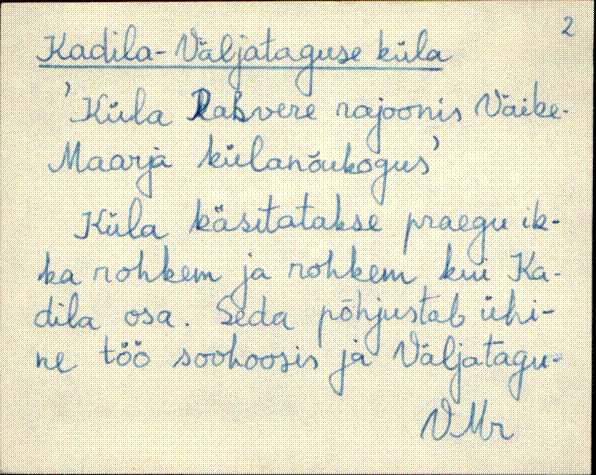 2
Kadila-Väljataguse küla
'Küla Rakvere rajoonis Väike-
Maarja külanõukogus'
Küla käsitatakse praegu ik-
ka rohkem ja rohkem kui Ka-
dila osa. Seda põhjustab ühi-
ne töö soohoosis ja Väljatagu-
VMr